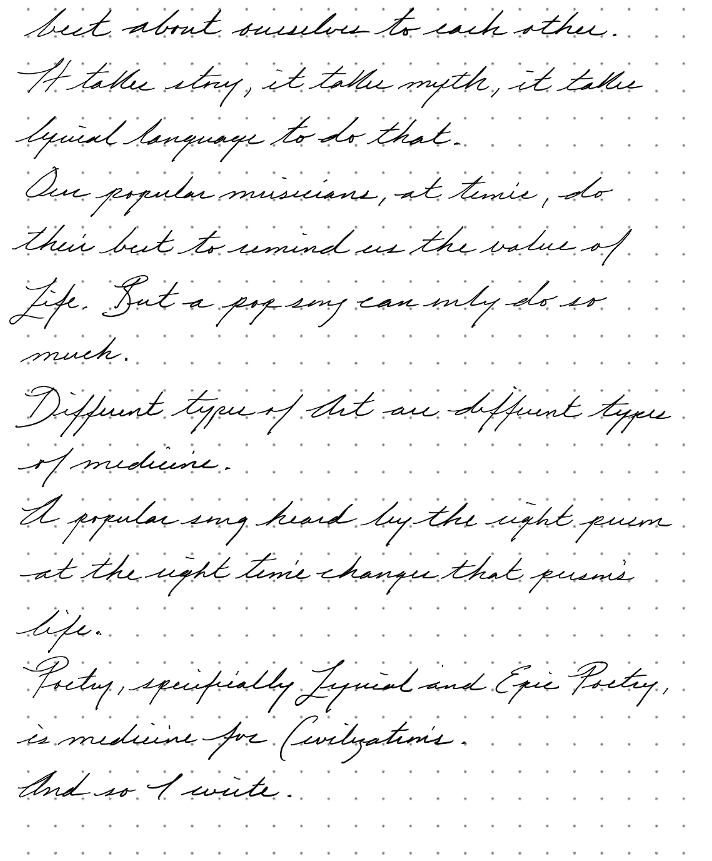 best about ourselves to each other.
It takes story, it takes myth, it takes
lyrical language to do that.
Our popular musicians, at times, do
their best to remind us the value of
Life. But a pop song can only do so
much.
Different types of Art are different types
of medicine.
A popular song heard by the right person
at the right time changes that person's
life.
Poetry, specifically Lyrical and Epic Poetry,
is medicine for Civilizations.
And so I write.